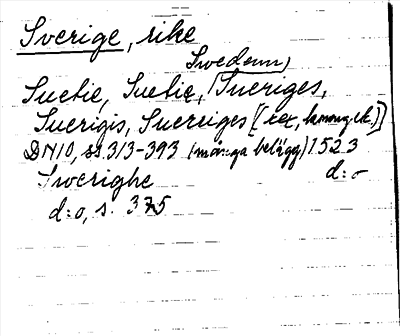 Sverige, rike
Swedenn,
Suetie, Suetię, Sueriges,
Suerigis, Suerriges [rex, konung etc.]
DN10, ss. 313-393 (många belägg) 1523
Swerighe d:o
d:o, s. 375